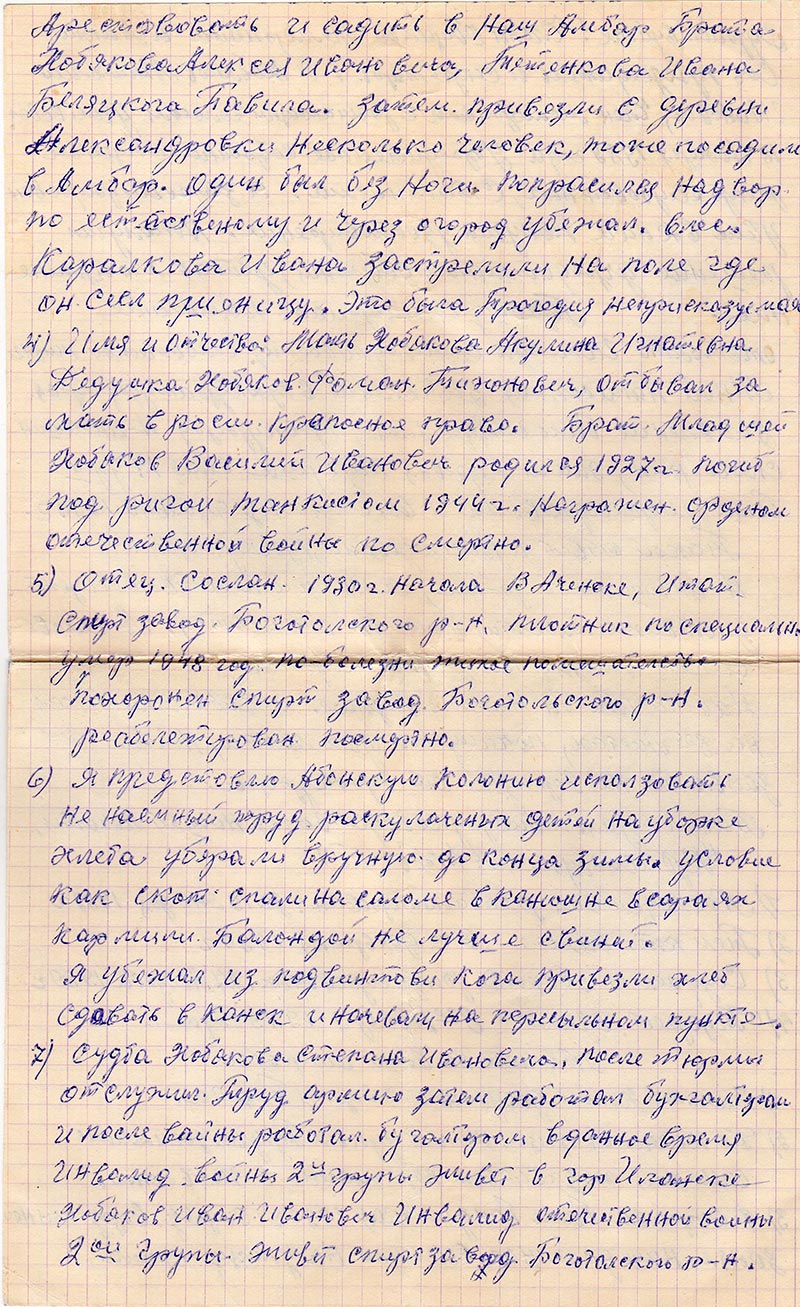 Арестововать и садить в наш Амбар Брата
Хобякова Алексея Ивановича, Тетенкова Ивана
Беляцкога Павила. Затем. привязли с деревни
Александровки несколько человек, тоже посадили
в Амбар. один был без ноги. попрасился надвор
по естаственому и через огород убежал. влес.
Каралкова Ивана застрелили на поле где
он сеел пшоницу. Это была Трогедия неприсказуемая
4) Имя и отчество Мать Хобякова Акулина Игнатевна
Дедушка Хобяков. Фоман. Тихонович, отбывал за
мать в росии. крапосное право. Брат. Младшей
Хобяков Василий Иванович родился 1927г. погиб
под ригой танкистом 1944г. Награжен. орденом
отечественной войны по смертно.
5) Отец. Сослан. 1930г. начала В Аченске, Итат.
Спирт завод. Боготолского р-н. плотник по специальн
умер 1948 год. по-болезни тихое помешательство
похоронен спирт завод. Боготольского р-н.
реабелетирован посмертно.
6) Я представлю Абонскую колонию исползовать
не наемный труд раскулаченых детей на уборке
хлеба убярали вручную. до конца зимы. условие
как скот спали на саломе в канюшне в сараях
кармили. Баландой не лучше свиней.
Я убежал из подвинтови кога привезли хлеб
сдавать в Канск и ночевали на пересыльном пункте.
7) Судба Хобякова Степана Ивановича, после тюрмы
отслужил. Труд армию затем работал бухгалтером
и после вайны работал. бугалтером в даное время
Инвалид войны 2й групы живет в гор Иланске
Хобяков Иван Иванович Инвалид отечественной войны
2ой групы. живет спиртзавод. Боготолского р-н.